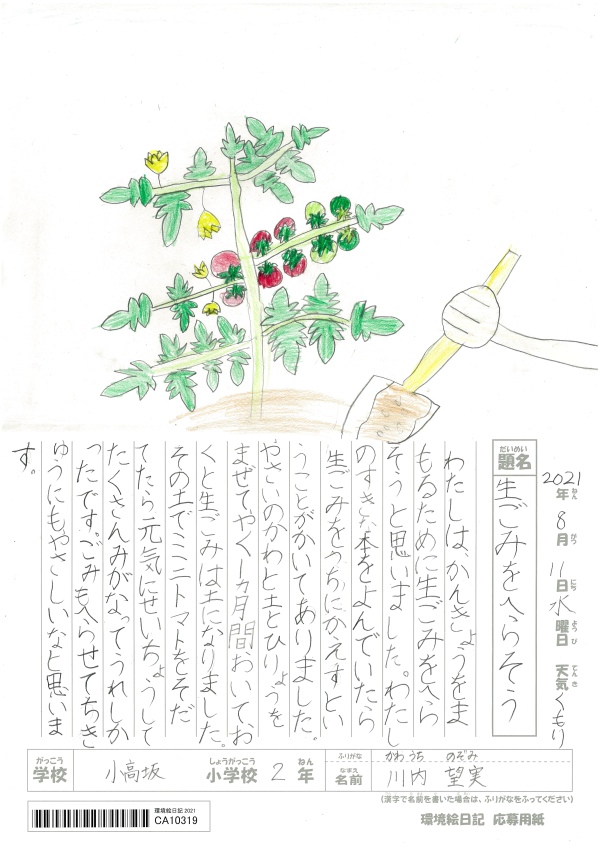 2021年8月11日水曜日 天気くもり
ねん がつ にち ようび てんき
だいめい
題名 生ごみをへらそう
わたしは、かんきょうをま
もるために生ごみをへら
そうと思いました。わたし
のすきな本をよんでいたら
生ごみをうちにかえすとい
うことがかいてありました。
やさいのかわと土とひりょうを
まぜてやく一ヵ月間おいてお
くと生ごみは土になりました。
その土でミニトマトをそだ
てたら元気にせいちょうして
たくさんみがなってうれしか
ったです。ごみもへらせてちき
ゅうにもやさしいなと思いま
す。
がっこう しょうがっこう ねん
学校 小高坂 小学校 2年
ふりがな かわうち のぞみ
なまえ
名前 川内 望実
(漢字で名前を書いた場合は、ふりがなをふってください)
環境絵日記 2021
CA10319
環境絵日記 応募用紙